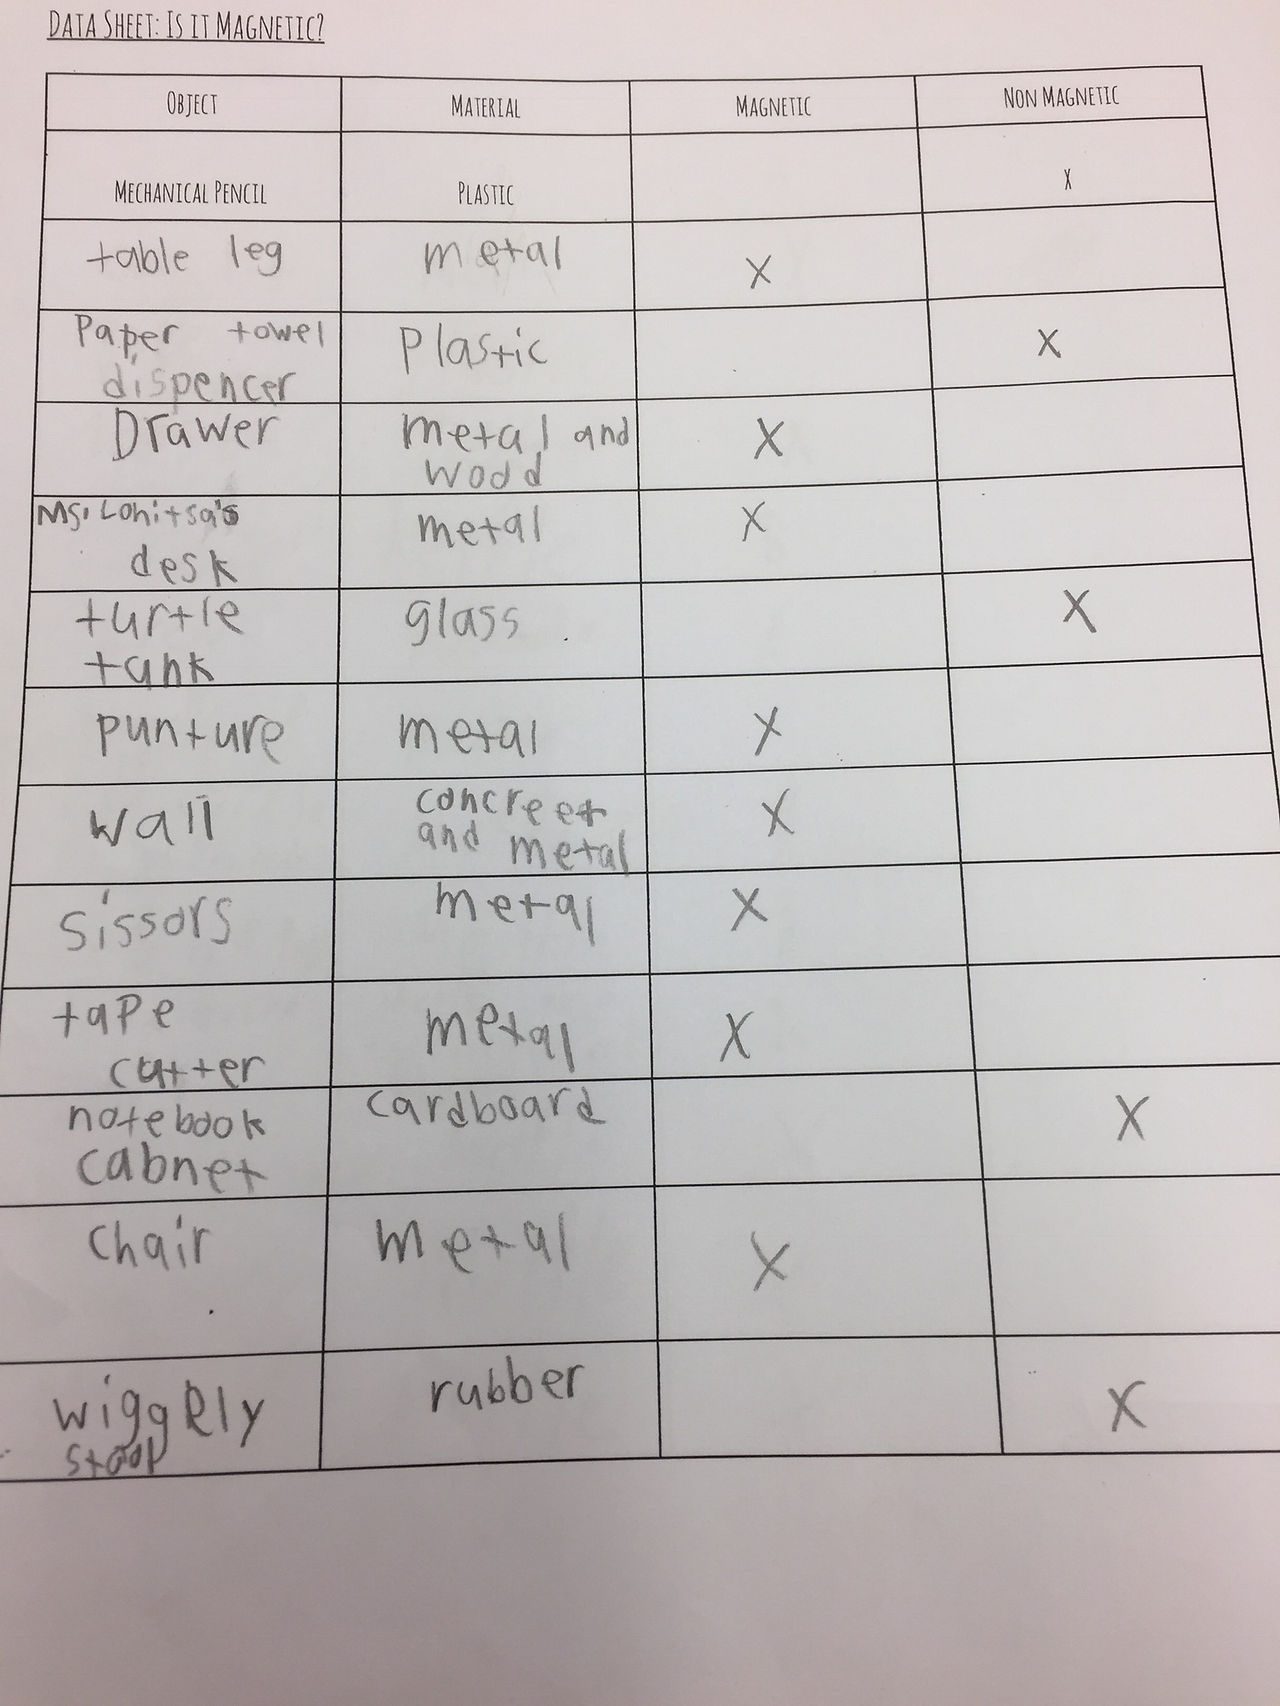 DATA SHEET: IS IT MAGNETIC?
OBJECT MATERIAL MAGNETIC NON MAGNETIC
MECHANICAL PENCIL PLASTIC X
table leg metal X
Paper towel
dispencer Plastic X
Drawer metal and
wood X
Ms. Lohitsa's
desk metal X
turtle
tank glass X
punture metal X
wall concreet
and metal X
sissors metal X
tape
cutter metal X
notebook
cabnet cardboard X
chair metal X
wiggely
stool rubber X